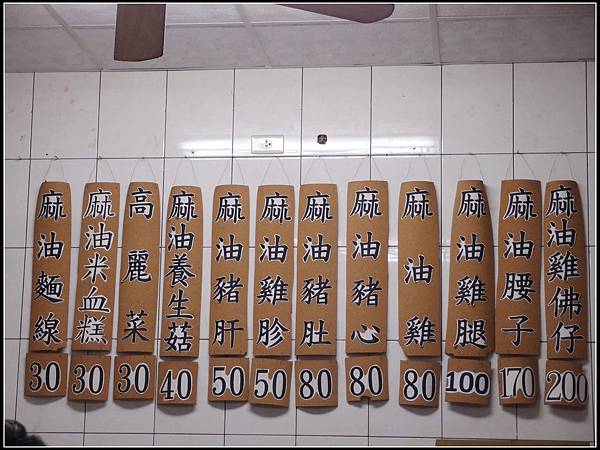 麻油麵線
30
麻油米血糕
30
高麗菜
30
麻油養生菇
40
麻油豬肝
50
麻油雞胗
50
麻油豬肚
80
麻油豬心
80
麻油雞
80
麻油雞腿
100
麻油腰子
170
麻油雞佛仔
200